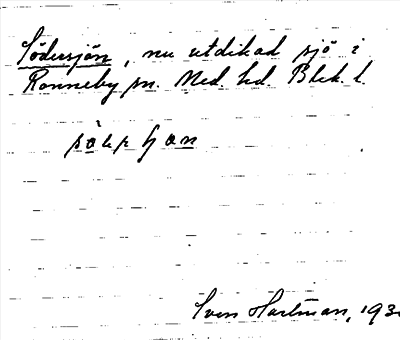 Södersjön, nu utdikad sjö i
Ronneby sn. Med. hd. Blek. l.
Sven Hartman, 193